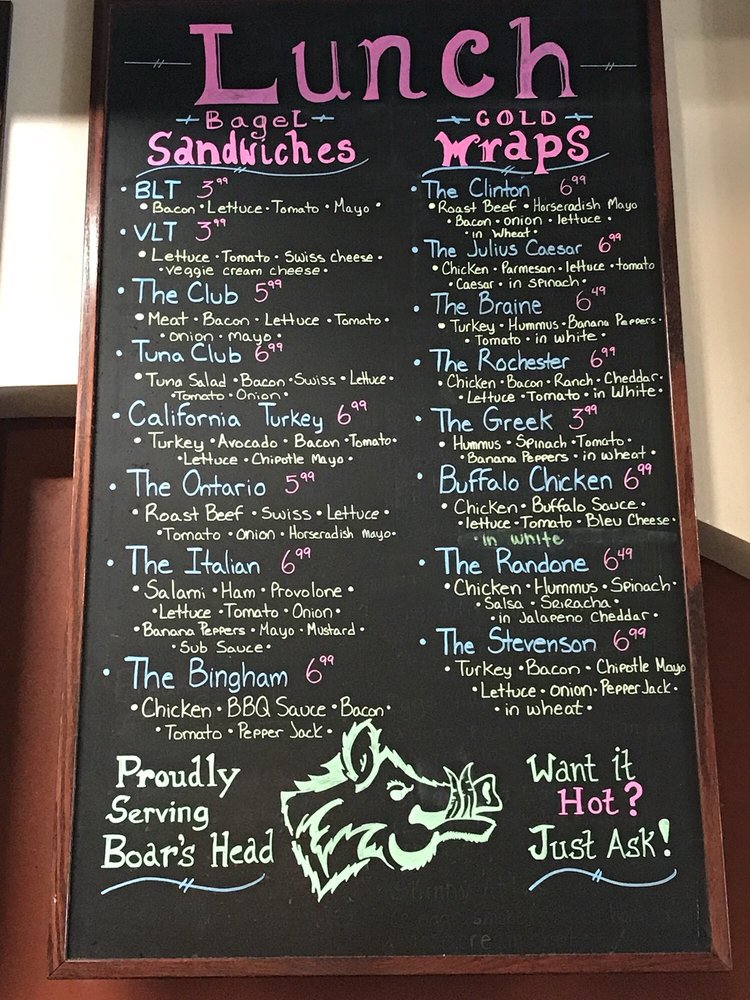 Lunch
Bagel
Sandwiches
• BLT 3⁹⁹
• Bacon • Lettuce • Tomato • Mayo •
• VLT 3⁹⁹
• Lettuce • Tomato • Swiss cheese •
• veggie cream cheese •
• The Club 5⁹⁹
• Meat • Bacon • Lettuce • Tomato •
• onion • mayo •
• Tuna Club 6⁹⁹
• Tuna Salad • Bacon • Swiss • Lettuce •
• Tomato • Onion •
• California Turkey 6⁹⁹
• Turkey • Avocado • Bacon • Tomato •
• Lettuce • Chipotle Mayo •
• The Ontario 5⁹⁹
• Roast Beef • Swiss • Lettuce •
• Tomato • Onion • Horseradish mayo •
• The Italian 6⁹⁹
• Salami • Ham • Provolone •
• Lettuce • Tomato • Onion •
• Banana Peppers • Mayo • Mustard •
• Sub Sauce •
• The Bingham 6⁹⁹
• Chicken • BBQ Sauce • Bacon •
• Tomato • Pepper Jack •
COLD
Wraps
• The Clinton 6⁹⁹
• Roast Beef • Horseradish Mayo
• Bacon • onion • lettuce •
• in Wheat •
• The Julius Caesar 6⁹⁹
• Chicken • Parmesan • lettuce • tomato
• Caesar • in spinach •
• The Braine 6⁴⁹
• Turkey • Hummus • Banana Peppers •
• Tomato • in white •
• The Rochester 6⁹⁹
• Chicken • Bacon • Ranch • Cheddar •
• Lettuce • Tomato • in White •
• The Greek 3⁹⁹
• Hummus • Spinach • Tomato •
• Banana Peppers • in wheat •
• Buffalo Chicken 6⁹⁹
• Chicken • Buffalo Sauce •
• lettuce • Tomato • Bleu Cheese •
• in white
• The Randone 6⁴⁹
• Chicken • Hummus • Spinach •
• Salsa • Sriracha •
• in Jalapeno Cheddar •
• The Stevenson 6⁹⁹
• Turkey • Bacon • Chipotle Mayo
• Lettuce • onion • Pepper Jack •
• in wheat •
Proudly
Serving
Boar's Head
Want it
Hot?
Just Ask!